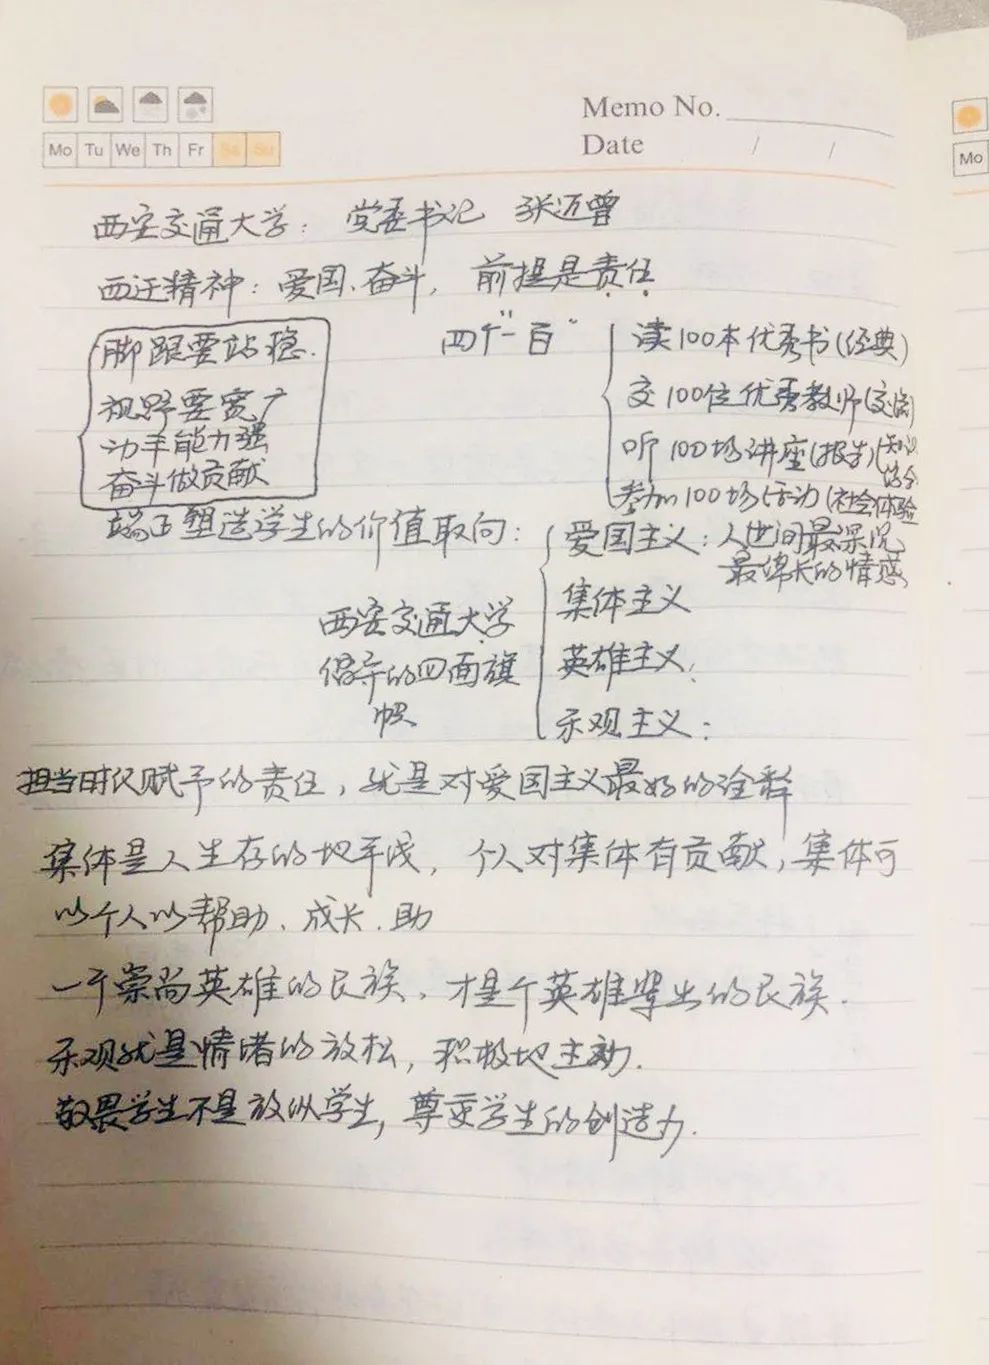 Memo No.
Mo Tu We Th Fr Sa Su
Date / /
Mo
西安交通大学：党委书记 张迈曾
西迁精神：爱国、奋斗，前提是责任
脚跟要站稳.
视野要宽广
动手能力强
奋斗做贡献
四个"一百"
读100本优秀书(经典)
交100位优秀教师(交流)
听100场讲座(报告)(知识
参加100场活动(社会体验
端正塑造学生的价值取向：
爱国主义：人世间最深沉
最绵长的情感
集体主义
英雄主义
乐观主义：
西安交通大学
倡导的四面旗
帜
担当时代赋予的责任，就是对爱国主义最好的诠释
集体是人生存的地平线，个人对集体有贡献，集体可
以个人以帮助、成长、助
一个崇尚英雄的民族，才是个英雄辈出的民族.
乐观就是情绪的放松，积极地主动.
敬畏学生不是放纵学生，尊重学生的创造力.